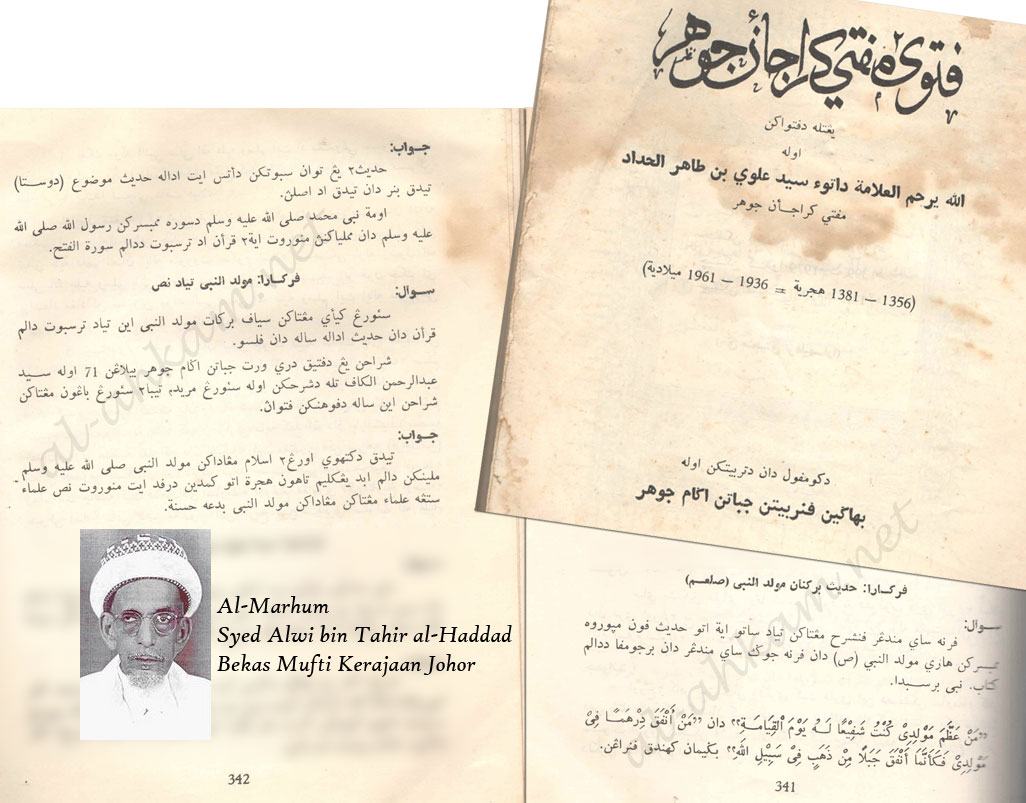 فتوى٢ مفتي كراجأن جوهر
يڠتله دفتواكن
اوله
الله يرحم العلامة داتوء سيد علوي بن طاهر الحداد
مفتي كراجأن جوهر
(1356 – 1381 هجرية = 1936 – 1961 ميلادية)
دكومفول دان دتربيتكن اوله
بهاڬين فنربيتن جباتن اڬام جوهر
فركارا: حديث بركنان مولد النبي (صلعم)
سوال:
فرنه ساي مندڠر فنشرح مڠتاكن تياد ساتو اية اتو حديث فون مپوروه
ممبسركن هاري مولد النبي (ص) دان فرنه جوڬ ساي مندڠر دان برجومفا ددالم
كتاب. نبي برسبدا.
„مَنْ عَظَّمَ مَوْلِدِيْ كُنْتُ شَفِيْعًا لَهُ يَوْمَ الْقِيَامَةِ” دان „مَنْ أَنْفَقَ دِرْهَمًا فِيْ
مَوْلِدِيْ فَكَأَنَّمَا أَنْفَقَ جَبَلًا مِنْ ذَهَبٍ فِيْ سَبِيْلِ اللهِ” بڬيمان كهندق فنراڠن.
341
جواب:
حديث٢ يڠ توان سبوتكن دأتس ايت اداله حديث موضوع (دوستا)
تيدق بنر دان تيدق اد اصلڽ.
اومة نبي محمد صلى الله عليه وسلم دسوره ممبسركن رسول الله صلى الله
عليه وسلم دان مملياكنڽ منوروت اية٢ قرأن اد ترسبوت ددالم سورة الفتح.
فركارا: مولد النبي تياد نص
سوال:
سئورڠ كياي مڠتاكن سياف بركات مولد النبي اين تياد ترسبوت دالم
قرأن دان حديث اداله ساله دان فلسو.
شراحن يڠ دفتيق دري ورت جباتن اڬام جوهر بيلاڠن 71 اوله سيد
عبدالرحمن الكاف تله دشرحكن اوله سئورڠ مريدڽ تيبا٢ سئورڠ باڠون مڠتاكن
شراحن اين ساله دفوهنكن فتواڽ.
جواب:
تيدق دكتهوي اورڠ٢ اسلام مڠاداكن مولد النبي صلى الله عليه وسلم
ملينكن دالم ابد يڠكليم تاهون هجرة اتو كمدين درفد ايت منوروت نص علماء
ستڠه علماء مڠتاكن مڠاداكن مولد النبي بدعه حسنة.
Al-Marhum
Syed Alwi bin Tahir al-Haddad
Bekas Mufti Kerajaan Johor
342
al-ahkam.net
al-ahkam.net